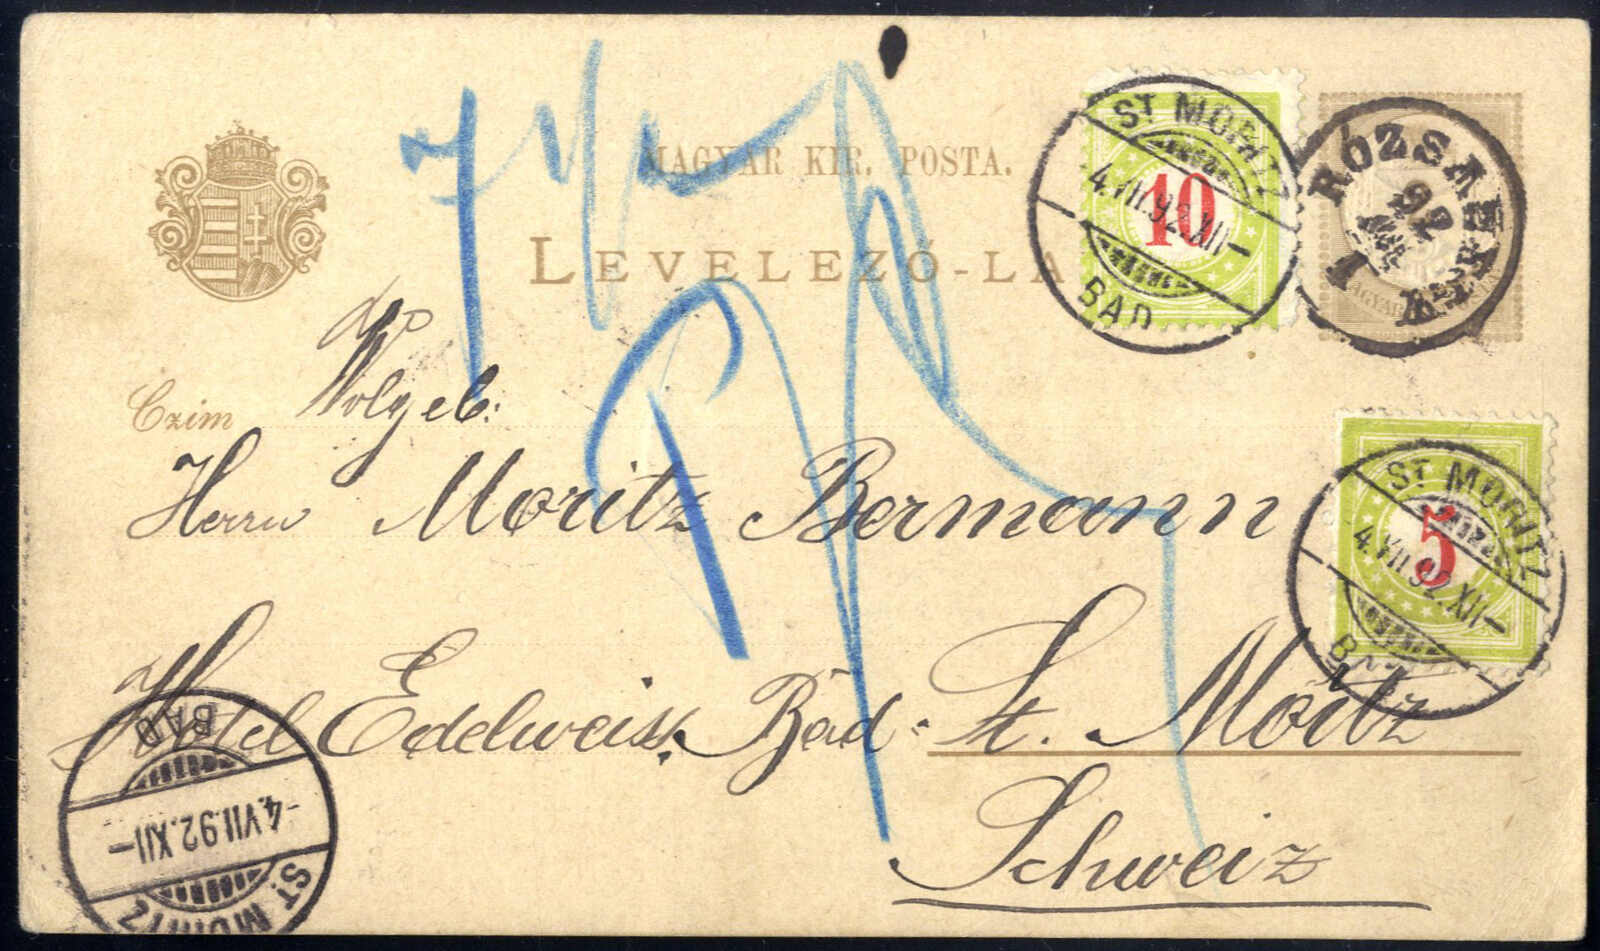 MAGYAR KIR. POSTA.
LEVELEZŐ-LA
ST MORITZ
4.VII.92.XII-
BAD
10
RÓZSAHEGY
92
1
MAGYAR
ST MORITZ
4.VII.92.XII-
BAD
5
Czim
Wolgeb:
Herrn Moritz Bermann
Hotel Edelweiss, Bad-St. Moritz
Schweiz
ST. MORITZ
-4.VII.92.XII-
BAD